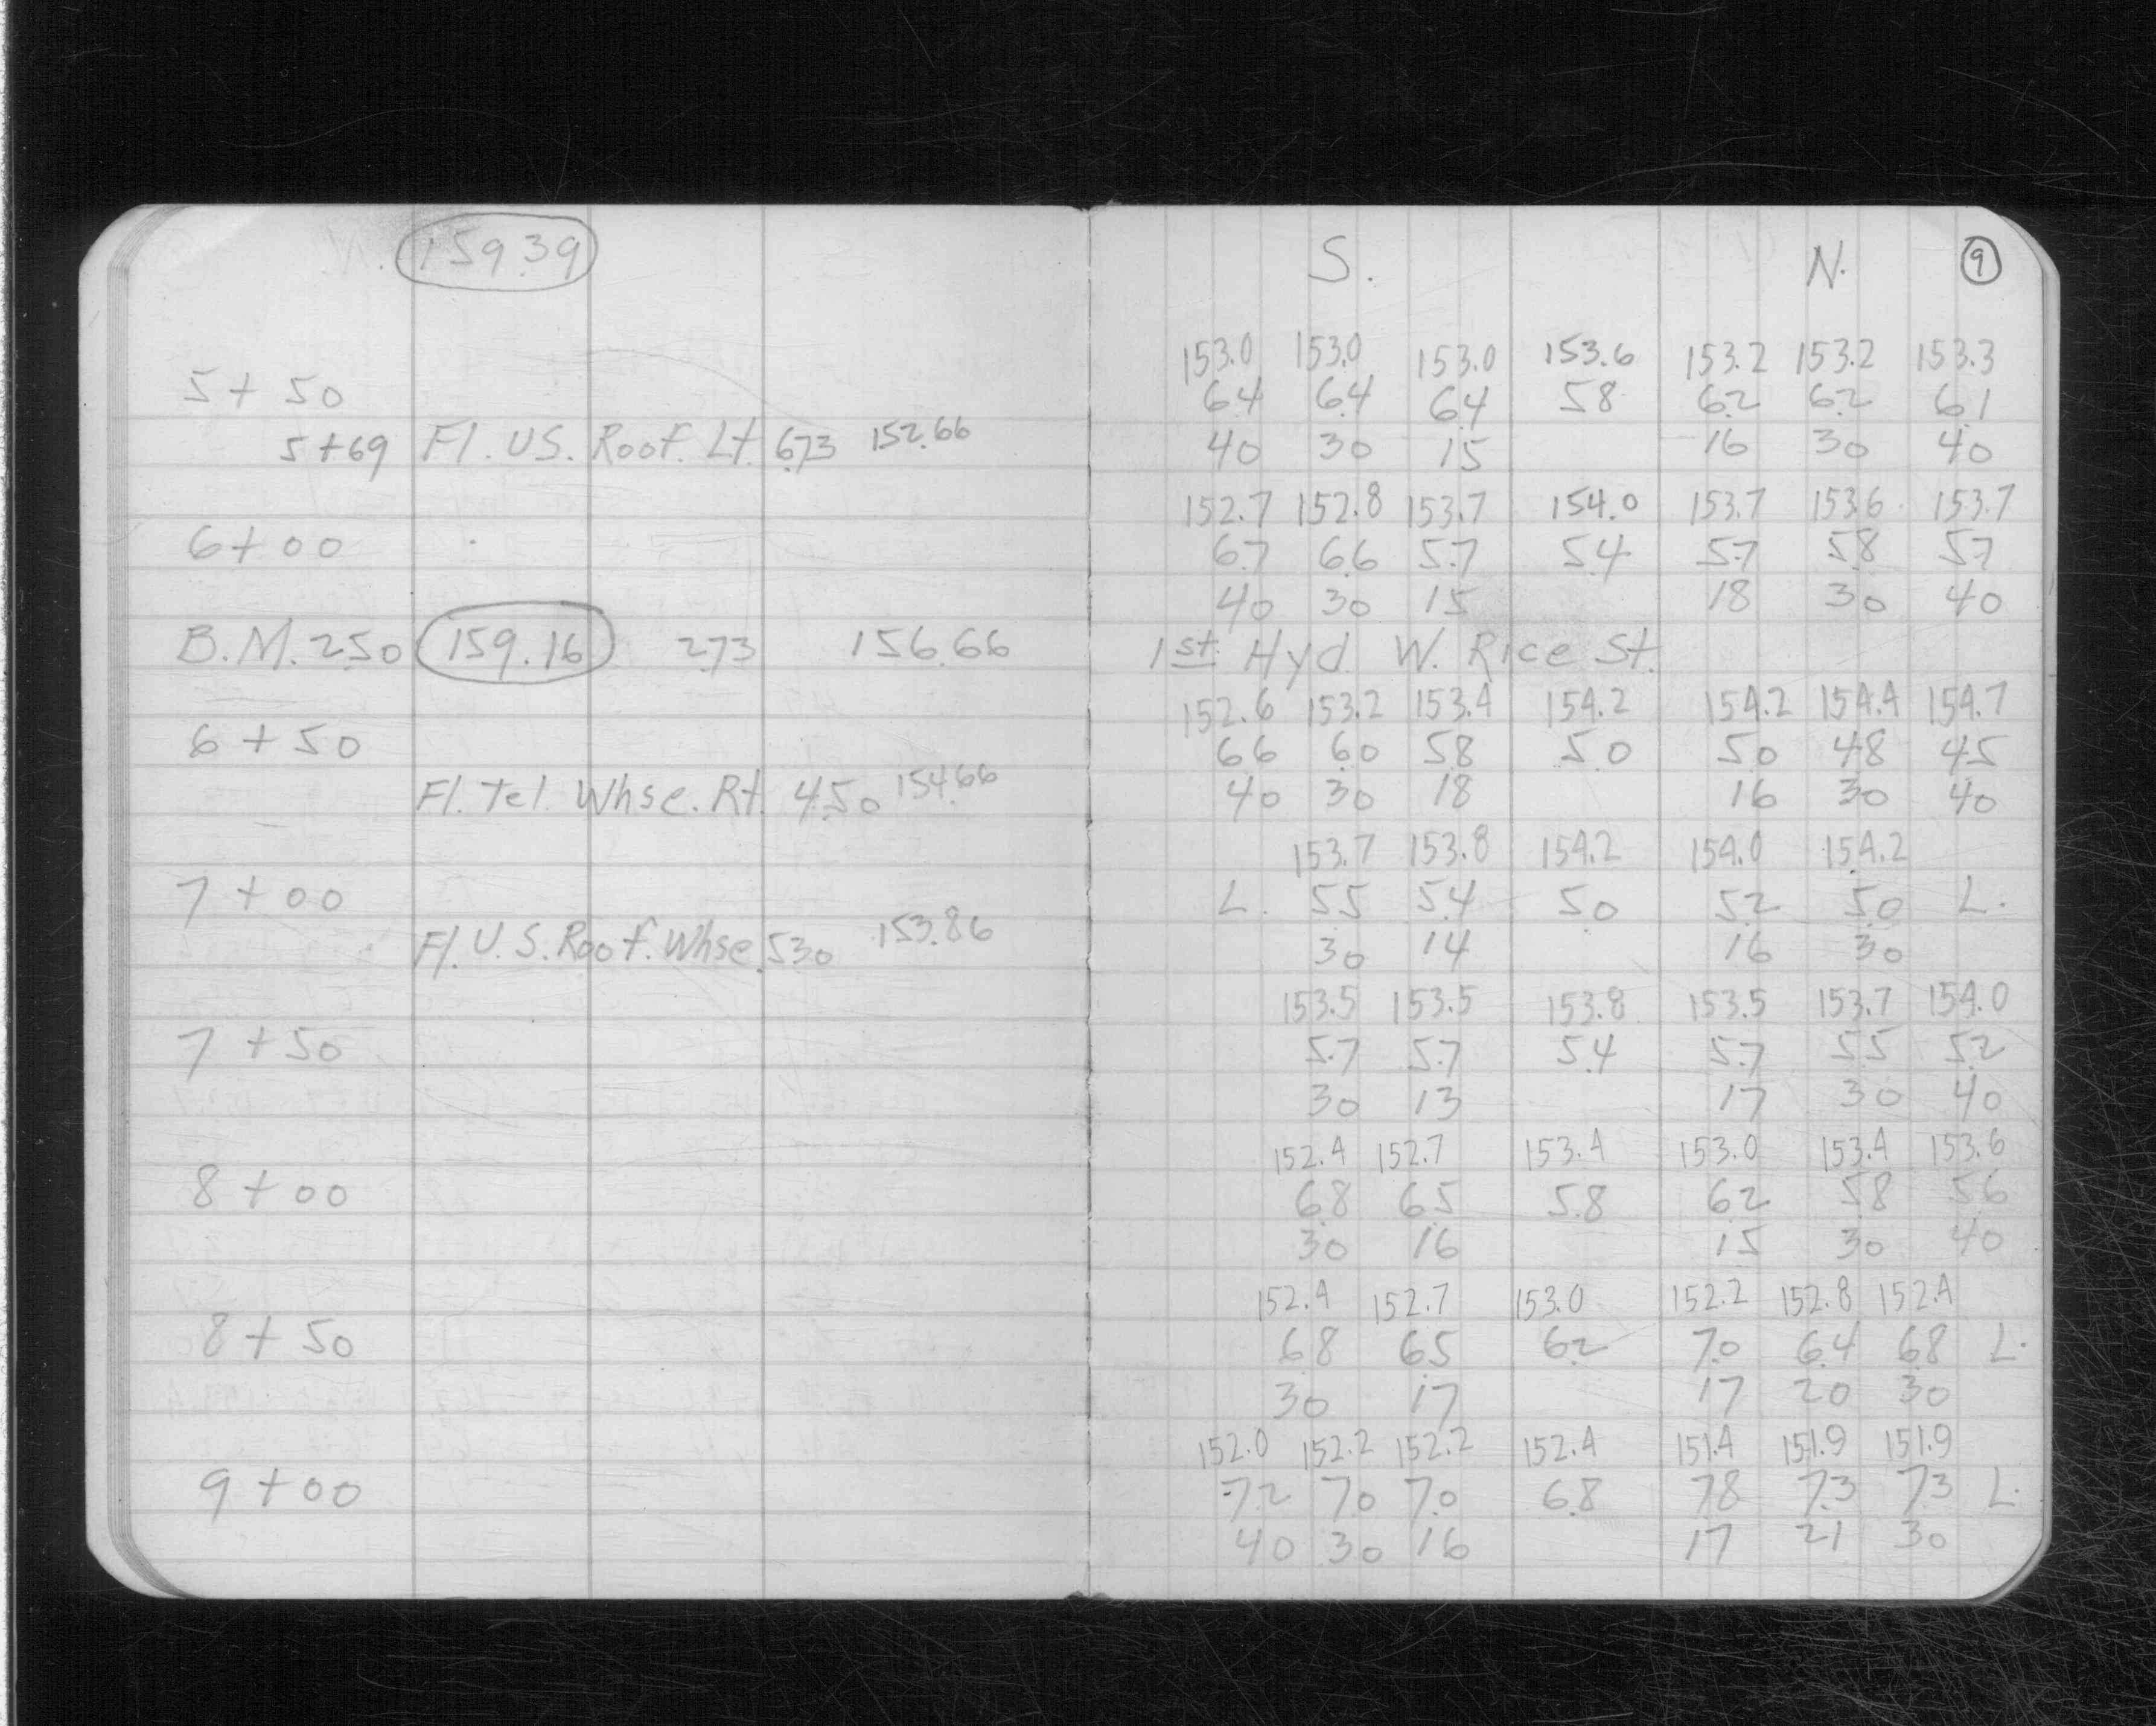 159.39
S. N. 9
153.0 153.0 153.0 153.6 153.2 153.2 153.3
5+50 6.4 6.4 6.4 5.8 6.2 6.2 6.1
5+69 Fl. U.S. Roof. Lt. 6.73 152.66 40 30 15 16 30 40
152.7 152.8 153.7 154.0 153.7 153.6 153.7
6+00 6.7 6.6 5.7 5.4 5.7 5.8 5.7
40 30 15 18 30 40
B.M. 2.50 159.16 2.73 156.66 1st Hyd. W. Rice St.
152.6 153.2 153.4 154.2 154.2 154.4 154.7
6+50 6.6 6.0 5.8 5.0 5.0 4.8 4.5
Fl. Tel. Whse. Rt. 4.50 154.66 40 30 18 16 30 40
153.7 153.8 154.2 154.0 154.2
7+00 L. 5.5 5.4 5.0 5.2 5.0 L.
Fl. U.S. Roof. Whse. 5.30 153.86 30 14 16 30
153.5 153.5 153.8 153.5 153.7 154.0
7+50 5.7 5.7 5.4 5.7 5.5 5.2
30 13 17 30 40
152.4 152.7 153.4 153.0 153.4 153.6
8+00 6.8 6.5 5.8 6.2 5.8 5.6
30 16 15 30 40
152.4 152.7 153.0 152.2 152.8 152.4
8+50 6.8 6.5 6.2 7.0 6.4 6.8 L.
30 17 17 20 30
152.0 152.2 152.2 152.4 151.4 151.9 151.9
9+00 7.2 7.0 7.0 6.8 7.8 7.3 7.3 L.
40 30 16 17 21 30